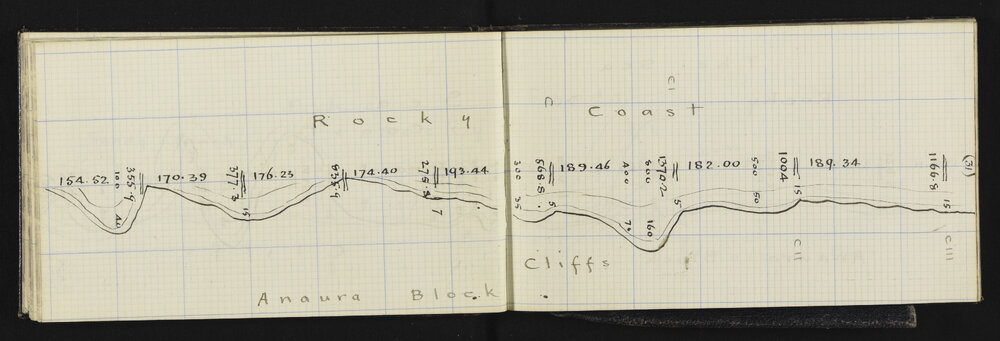 (31)
CI
C
Rocky Coast
154.52 355.9 170.39 377.3 176.23 174.40 275.8 193.44 568.8 189.46 1370.2 182.00 1004 189.34 1166.8
100 300 400 800 500
40 15 7 35 5 70 160 5 50 15 15
CII CIII
Cliffs
Anaura Block